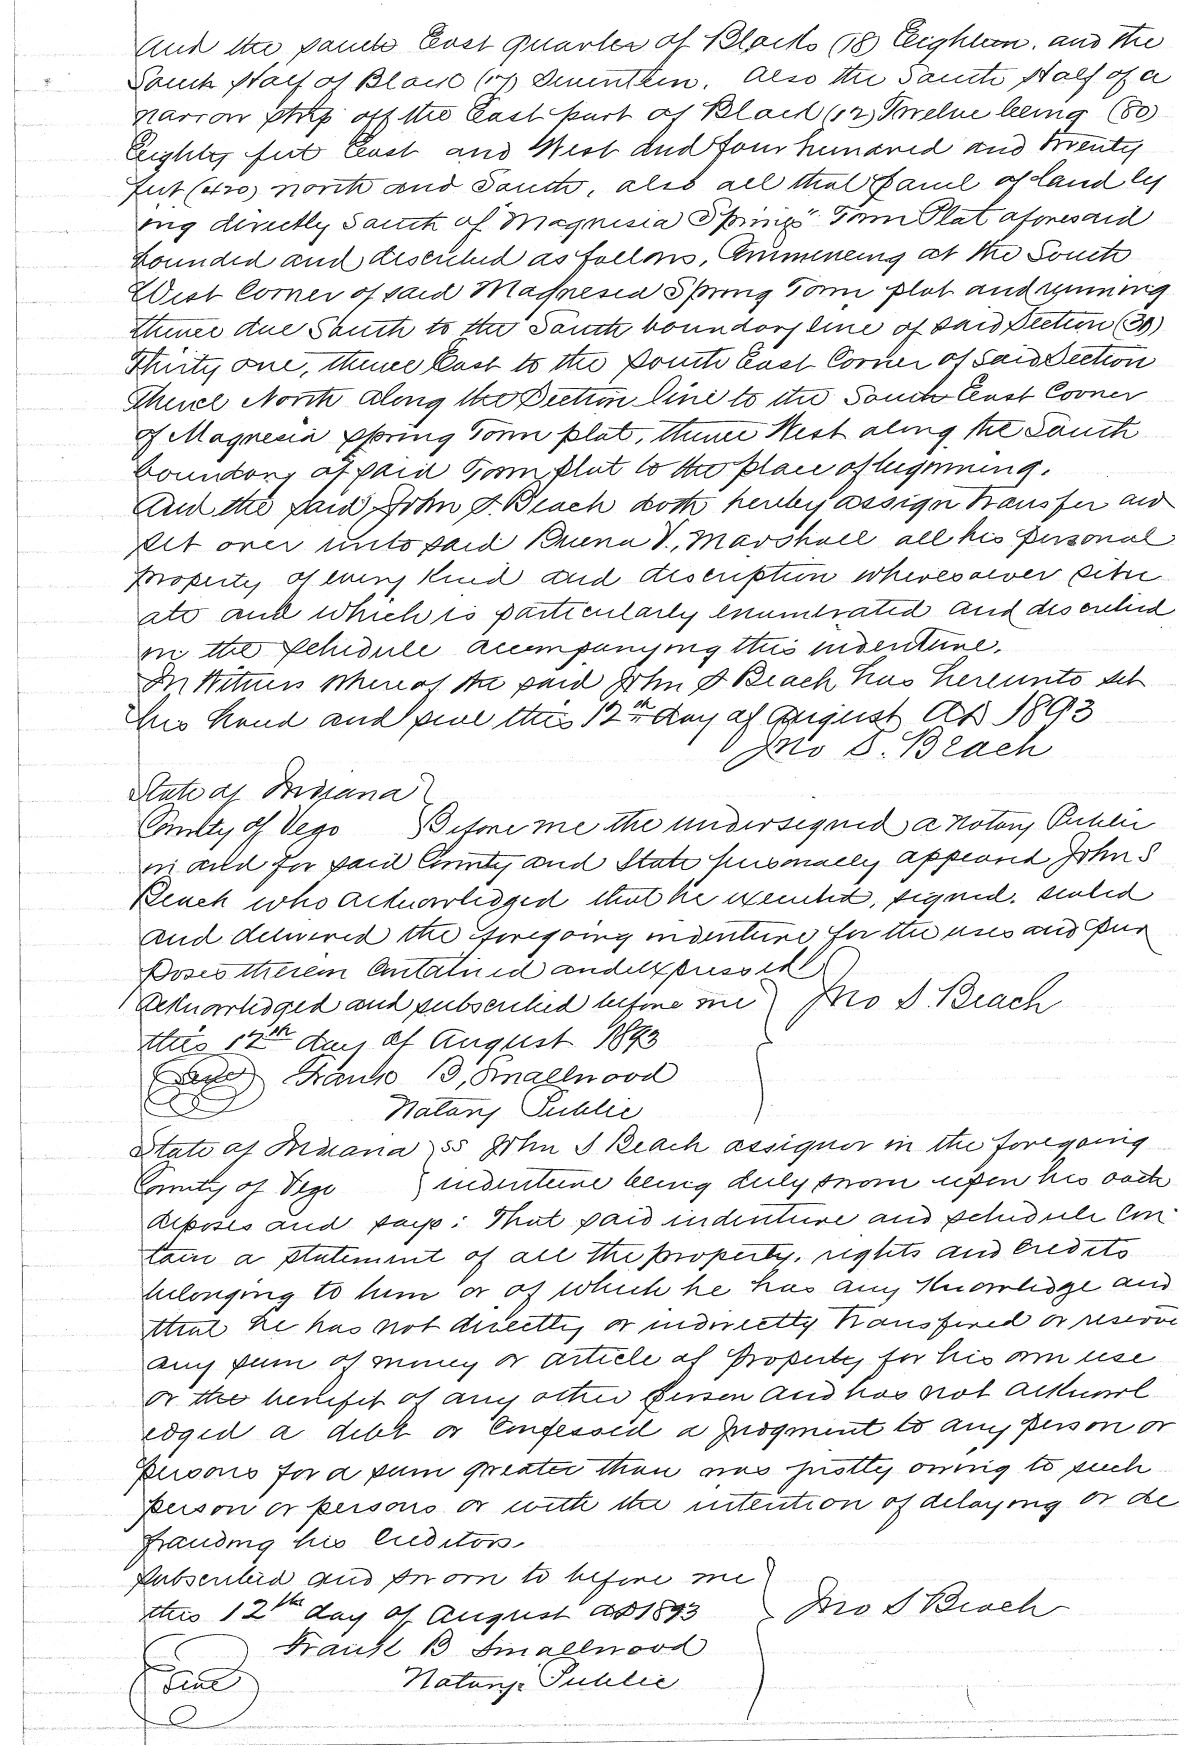 And the South East quarter of Block (18) Eighteen. and the
South Half of Block (17) Seventeen. Also the South Half of a
narrow strip off the East part of Block (12) Twelve being (80)
Eighty feet East and West and four hundred and twenty
feet (420) north and South, also all that parcel of land ly
ing directly South of "Magnesia Springs" Town Plat aforesaid
bounded and described as follows, Commencing at the South
West Corner of said Magnesia Spring Town plat and running
thence due South to the South boundary line of said Section (31)
Thirty one, thence East to the South East Corner of said Section
Thence North along the Section line to the South East Corner
of Magnesia Spring Town plat, thence West along the South
boundary of said Town plat to the place of beginning.
And the said John S. Beach doth hereby assign transfer and
set over unto said Buena V. Marshall all his personal
property of every kind and discription wheresoever situ
ate and which is particularly enumerated and described
in the schedule accompanying this indenture.
In Witness Whereof the said John S Beach has hereunto set
his hand and seal this 12th day of August AD 1893
Jno S. Beach
State of Indiana }
County of Vego } Before me the undersigned a Notary Public
in and for said County and State personally appeared John S
Beach who acknowledged that he executed, signed. sealed
and delivered the foregoing indenture for the uses and pur
poses therein Contained and expressed
Acknowledged and subscribed before me } Jno S. Beach
this 12th day of August 1893
Seal Frank B, Smallwood
Notary Public
State of Indiana } SS John S Beach assignor in the foregoing
County of Vego } indenture being duly sworn upon his oath
deposes and says: That said indenture and schedule Con-
tain a statement of all the property, rights and credits
belonging to him or of which he has any Knowledge and
that he has not directly or indirectly transfered or reserve
any sum of money or article of property for his own use
or the benefit of any other person and has not acknowl
edged a debt or Confessed a Judgment to any person or
persons for a sum greater than was justly owing to such
person or persons or with the intention of delaying or de
frauding his Creditors.
Subscribed and sworn to before me }
this 12th day of August AD 1893 } Jno S Beach
Frank B Smallwood
Seal Notary Public